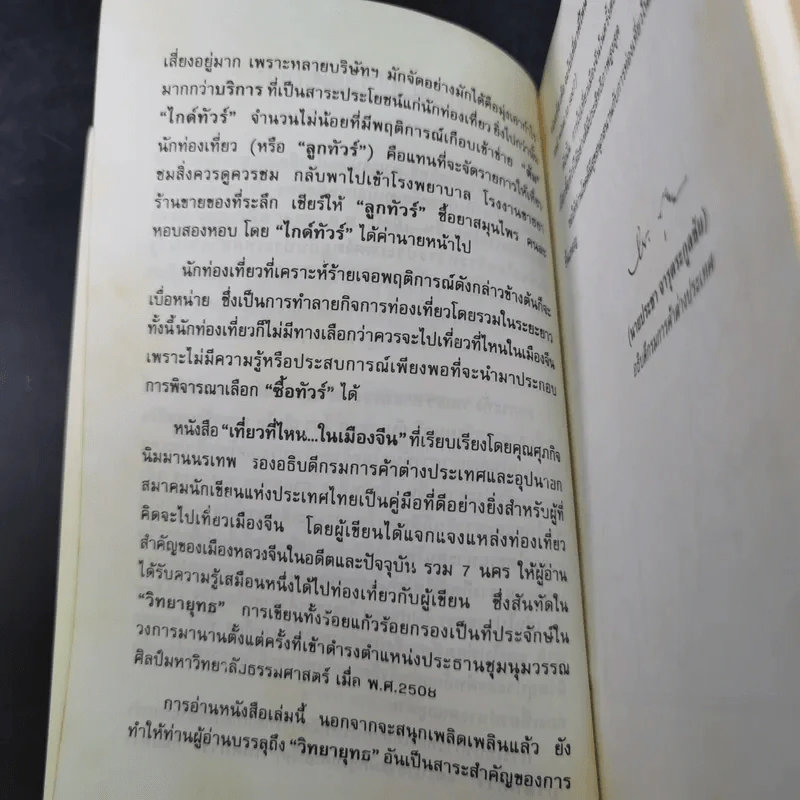 เสี่ยงอยู่มาก เพราะหลายบริษัทฯ มักจัดอย่างมักได้คือมุ่งเอากำไร
มากกว่าบริการ ที่เป็นสาระประโยชน์แก่นักท่องเที่ยว ยิ่งไปกว่านั้น
“ไกด์ทัวร์” จำนวนไม่น้อยที่มีพฤติการณ์เกือบเข้าข่าย
นักท่องเที่ยว (หรือ “ลูกทัวร์”) คือแทนที่จะจัดรายการให้เที่ยว
ชมสิ่งควรดูควรชม กลับพาไปเข้าโรงพยาบาล โรงงานขายยา
ร้านขายของที่ระลึก เชียร์ให้ “ลูกทัวร์” ซื้อยาสมุนไพร คนละ
หอบสองหอบ โดย “ไกด์ทัวร์” ได้ค่านายหน้าไป
นักท่องเที่ยวที่เคราะห์ร้ายเจอพฤติการณ์ดังกล่าวข้างต้นก็จะ
เบื่อหน่าย ซึ่งเป็นการทำลายกิจการท่องเที่ยวโดยรวมในระยะยาว
ทั้งนี้นักท่องเที่ยวก็ไม่มีทางเลือกว่าควรจะไปเที่ยวที่ไหนในเมืองจีน
เพราะไม่มีความรู้หรือประสบการณ์เพียงพอที่จะนำมาประกอบ
การพิจารณาเลือก “ซื้อทัวร์” ได้
หนังสือ “เที่ยวที่ไหน...ในเมืองจีน” ที่เรียบเรียงโดยคุณศุภกิจ
นิมมานนรเทพ รองอธิบดีกรมการค้าต่างประเทศและอุปนายก
สมาคมนักเขียนแห่งประเทศไทยเป็นคู่มือที่ดีอย่างยิ่งสำหรับผู้ที่
คิดจะไปเที่ยวเมืองจีน โดยผู้เขียนได้แจกแจงแหล่งท่องเที่ยว
สำคัญของเมืองหลวงจีนในอดีตและปัจจุบัน รวม 7 นคร ให้ผู้อ่าน
ได้รับความรู้เสมือนหนึ่งได้ไปท่องเที่ยวกับผู้เขียน ซึ่งสันทัดใน
“วิทยายุทธ” การเขียนทั้งร้อยแก้วร้อยกรองเป็นที่ประจักษ์ใน
วงการมานานตั้งแต่ครั้งที่เข้าดำรงตำแหน่งประธานชุมนุมวรรณ
ศิลป์มหาวิทยาลัยธรรมศาสตร์ เมื่อ พ.ศ.2508
การอ่านหนังสือเล่มนี้ นอกจากจะสนุกเพลิดเพลินแล้ว ยัง
ทำให้ท่านผู้อ่านบรรลุถึง “วิทยายุทธ” อันเป็นสาระสำคัญของการ
(นายประชา จารุตระกูลชัย)
อธิบดีกรมการค้าต่างประเทศ